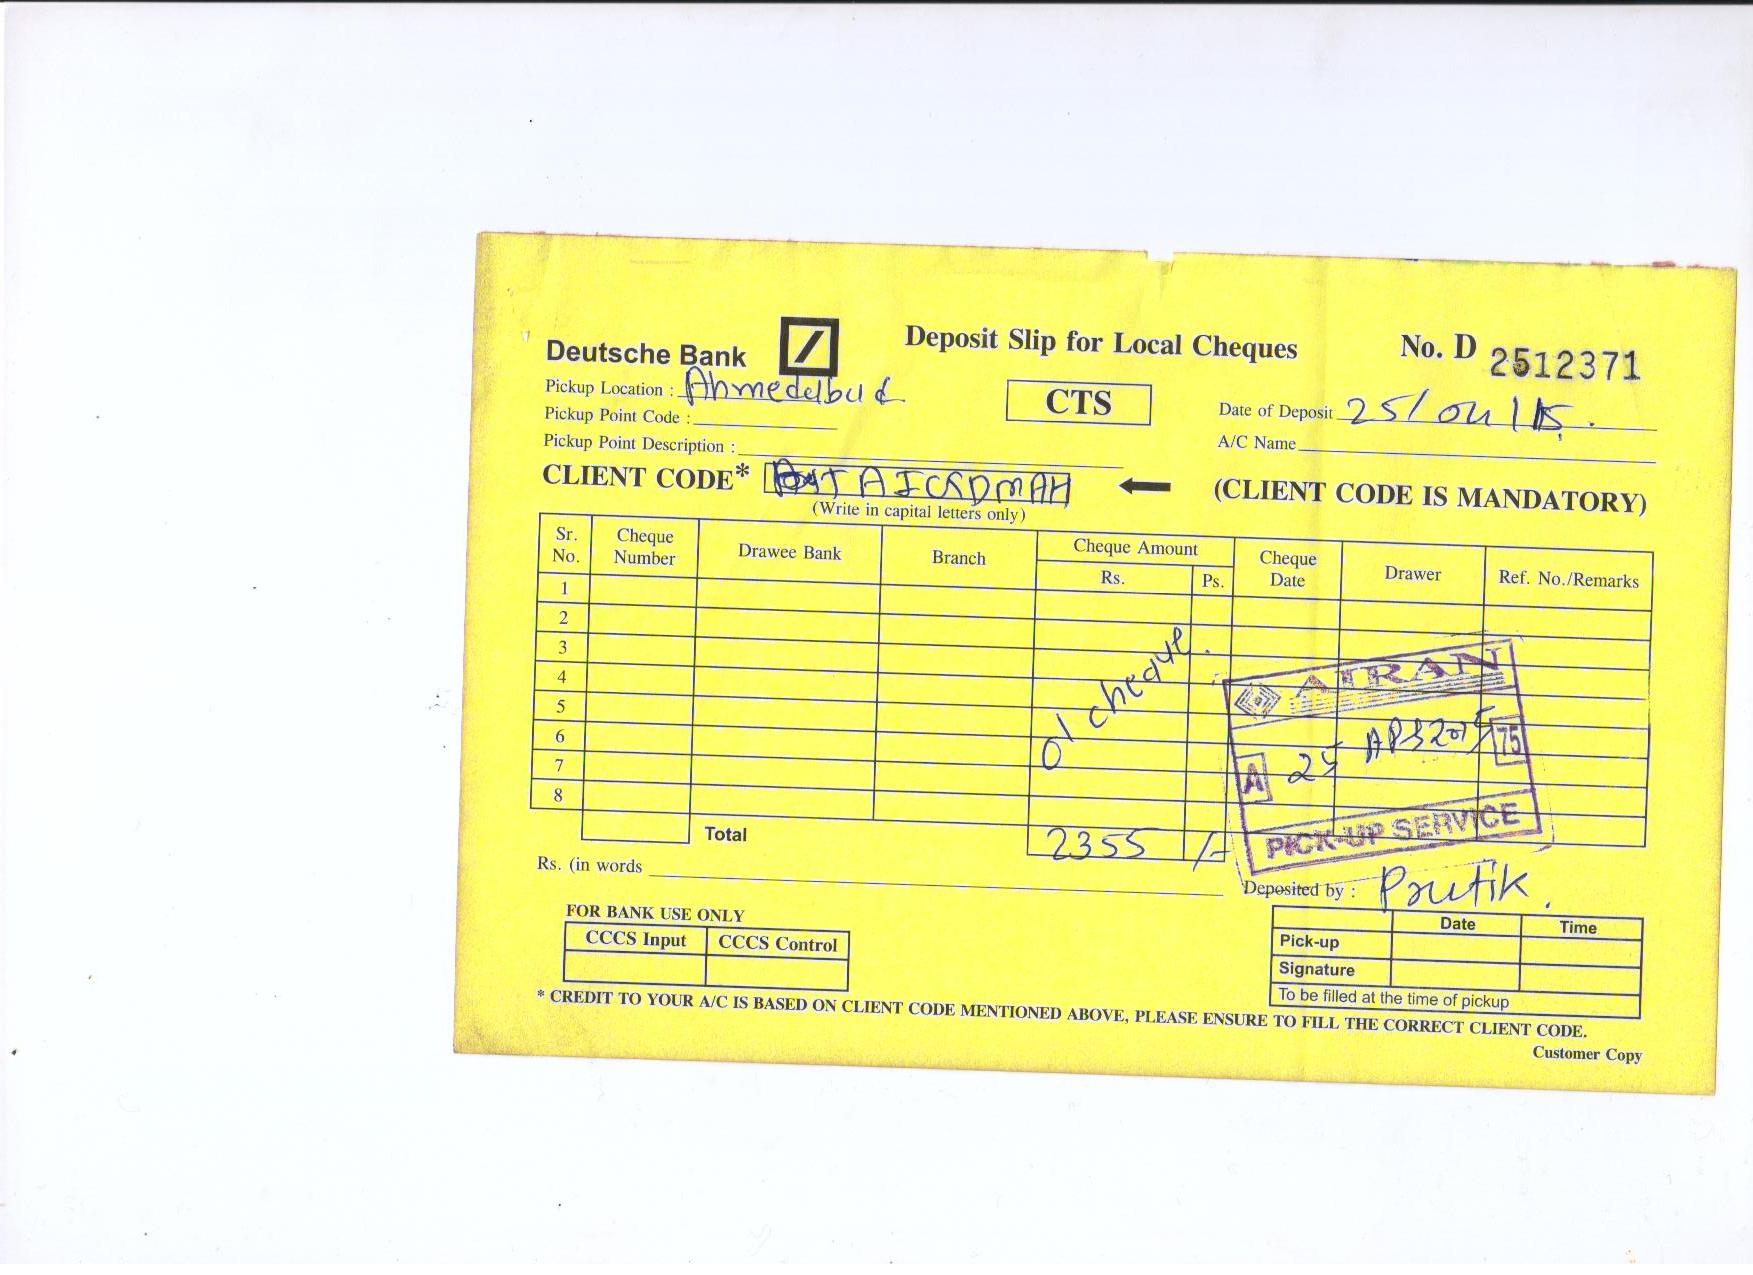 Deutsche Bank
Deposit Slip for Local Cheques
No. D 2512371
Pickup Location : Ahmedabad
CTS
Date of Deposit 25/04/15.
Pickup Point Code :
A/C Name
Pickup Point Description :
CLIENT CODE*
(CLIENT CODE IS MANDATORY)
(Write in capital letters only)
Sr. No. Cheque Number Drawee Bank Branch Cheque Amount Rs. Ps. Cheque Date Drawer Ref. No./Remarks
1
2
3
4
5
6
7
8
01 cheque.
AIRAN
A 25 APR 2015 75
PICK-UP SERVICE
Total 2355 /-
Rs. (in words
Deposited by : Pratik.
FOR BANK USE ONLY
CCCS Input CCCS Control
Date Time
Pick-up
Signature
To be filled at the time of pickup
* CREDIT TO YOUR A/C IS BASED ON CLIENT CODE MENTIONED ABOVE, PLEASE ENSURE TO FILL THE CORRECT CLIENT CODE.
Customer Copy